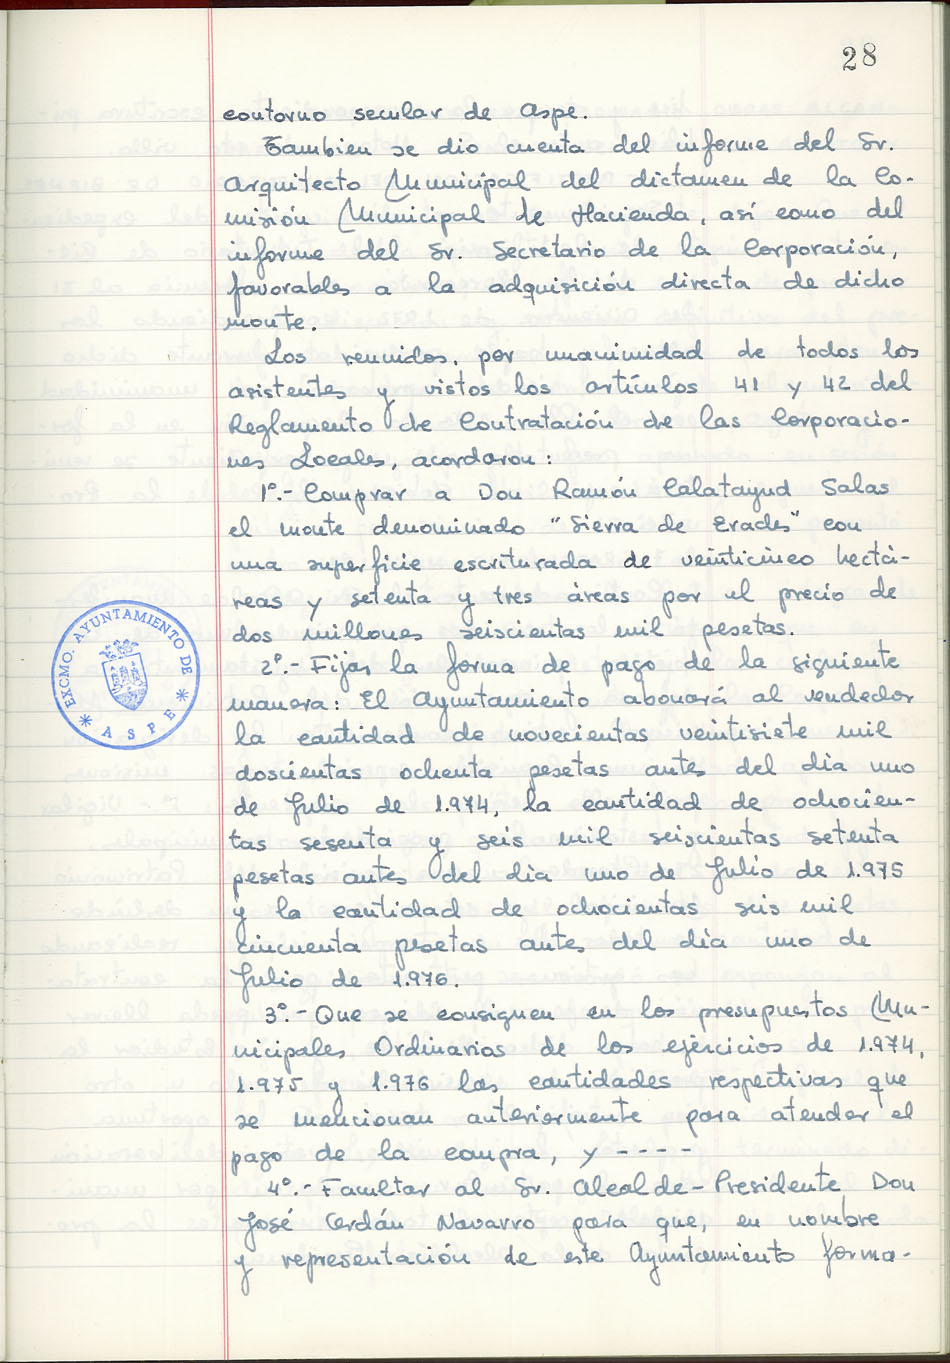 28
contorno secular de Aspe.
Tambien se dio cuenta del informe del Sr.
Arquitecto Municipal del dictamen de la Co-
misión Municipal de Hacienda, así como del
informe del Sr. Secretario de la Corporación,
favorables a la adquisición directa de dicho
monte.
Los reunidos, por unanimidad de todos los
asistentes y vistos los artículos 41 y 42 del
Reglamento de Contratación de las Corporacio-
nes Locales, acordaron:
1º.- Comprar a Don Ramón Calatayud Salas
el monte denominado "Sierra de Erades" con
una superficie escriturada de veinticinco hectá-
reas y setenta y tres áreas por el precio de
dos millones seiscientas mil pesetas.
2º.- Fijar la forma de pago de la siguiente
manera: El Ayuntamiento abonará al vendedor
la cantidad de novecientas veintisiete mil
doscientas ochenta pesetas antes del día uno
de Julio de 1.974, la cantidad de ochocien-
tas sesenta y seis mil seiscientas setenta
pesetas antes del día uno de Julio de 1.975
y la cantidad de ochocientas seis mil
cincuenta pesetas antes del día uno de
Julio de 1.976.
3º.- Que se consignen en los presupuestos Mu-
nicipales Ordinarios de los ejercicios de 1.974,
1.975 y 1.976 las cantidades respectivas que
se mencionan anteriormente para atender el
pago de la compra, y - - - - -
4º.- Facultar al Sr. Alcalde-Presidente Don
José Cerdán Navarro para que, en nombre
y representación de este Ayuntamiento forma-
EXCMO. AYUNTAMIENTO DE
* ASPE *